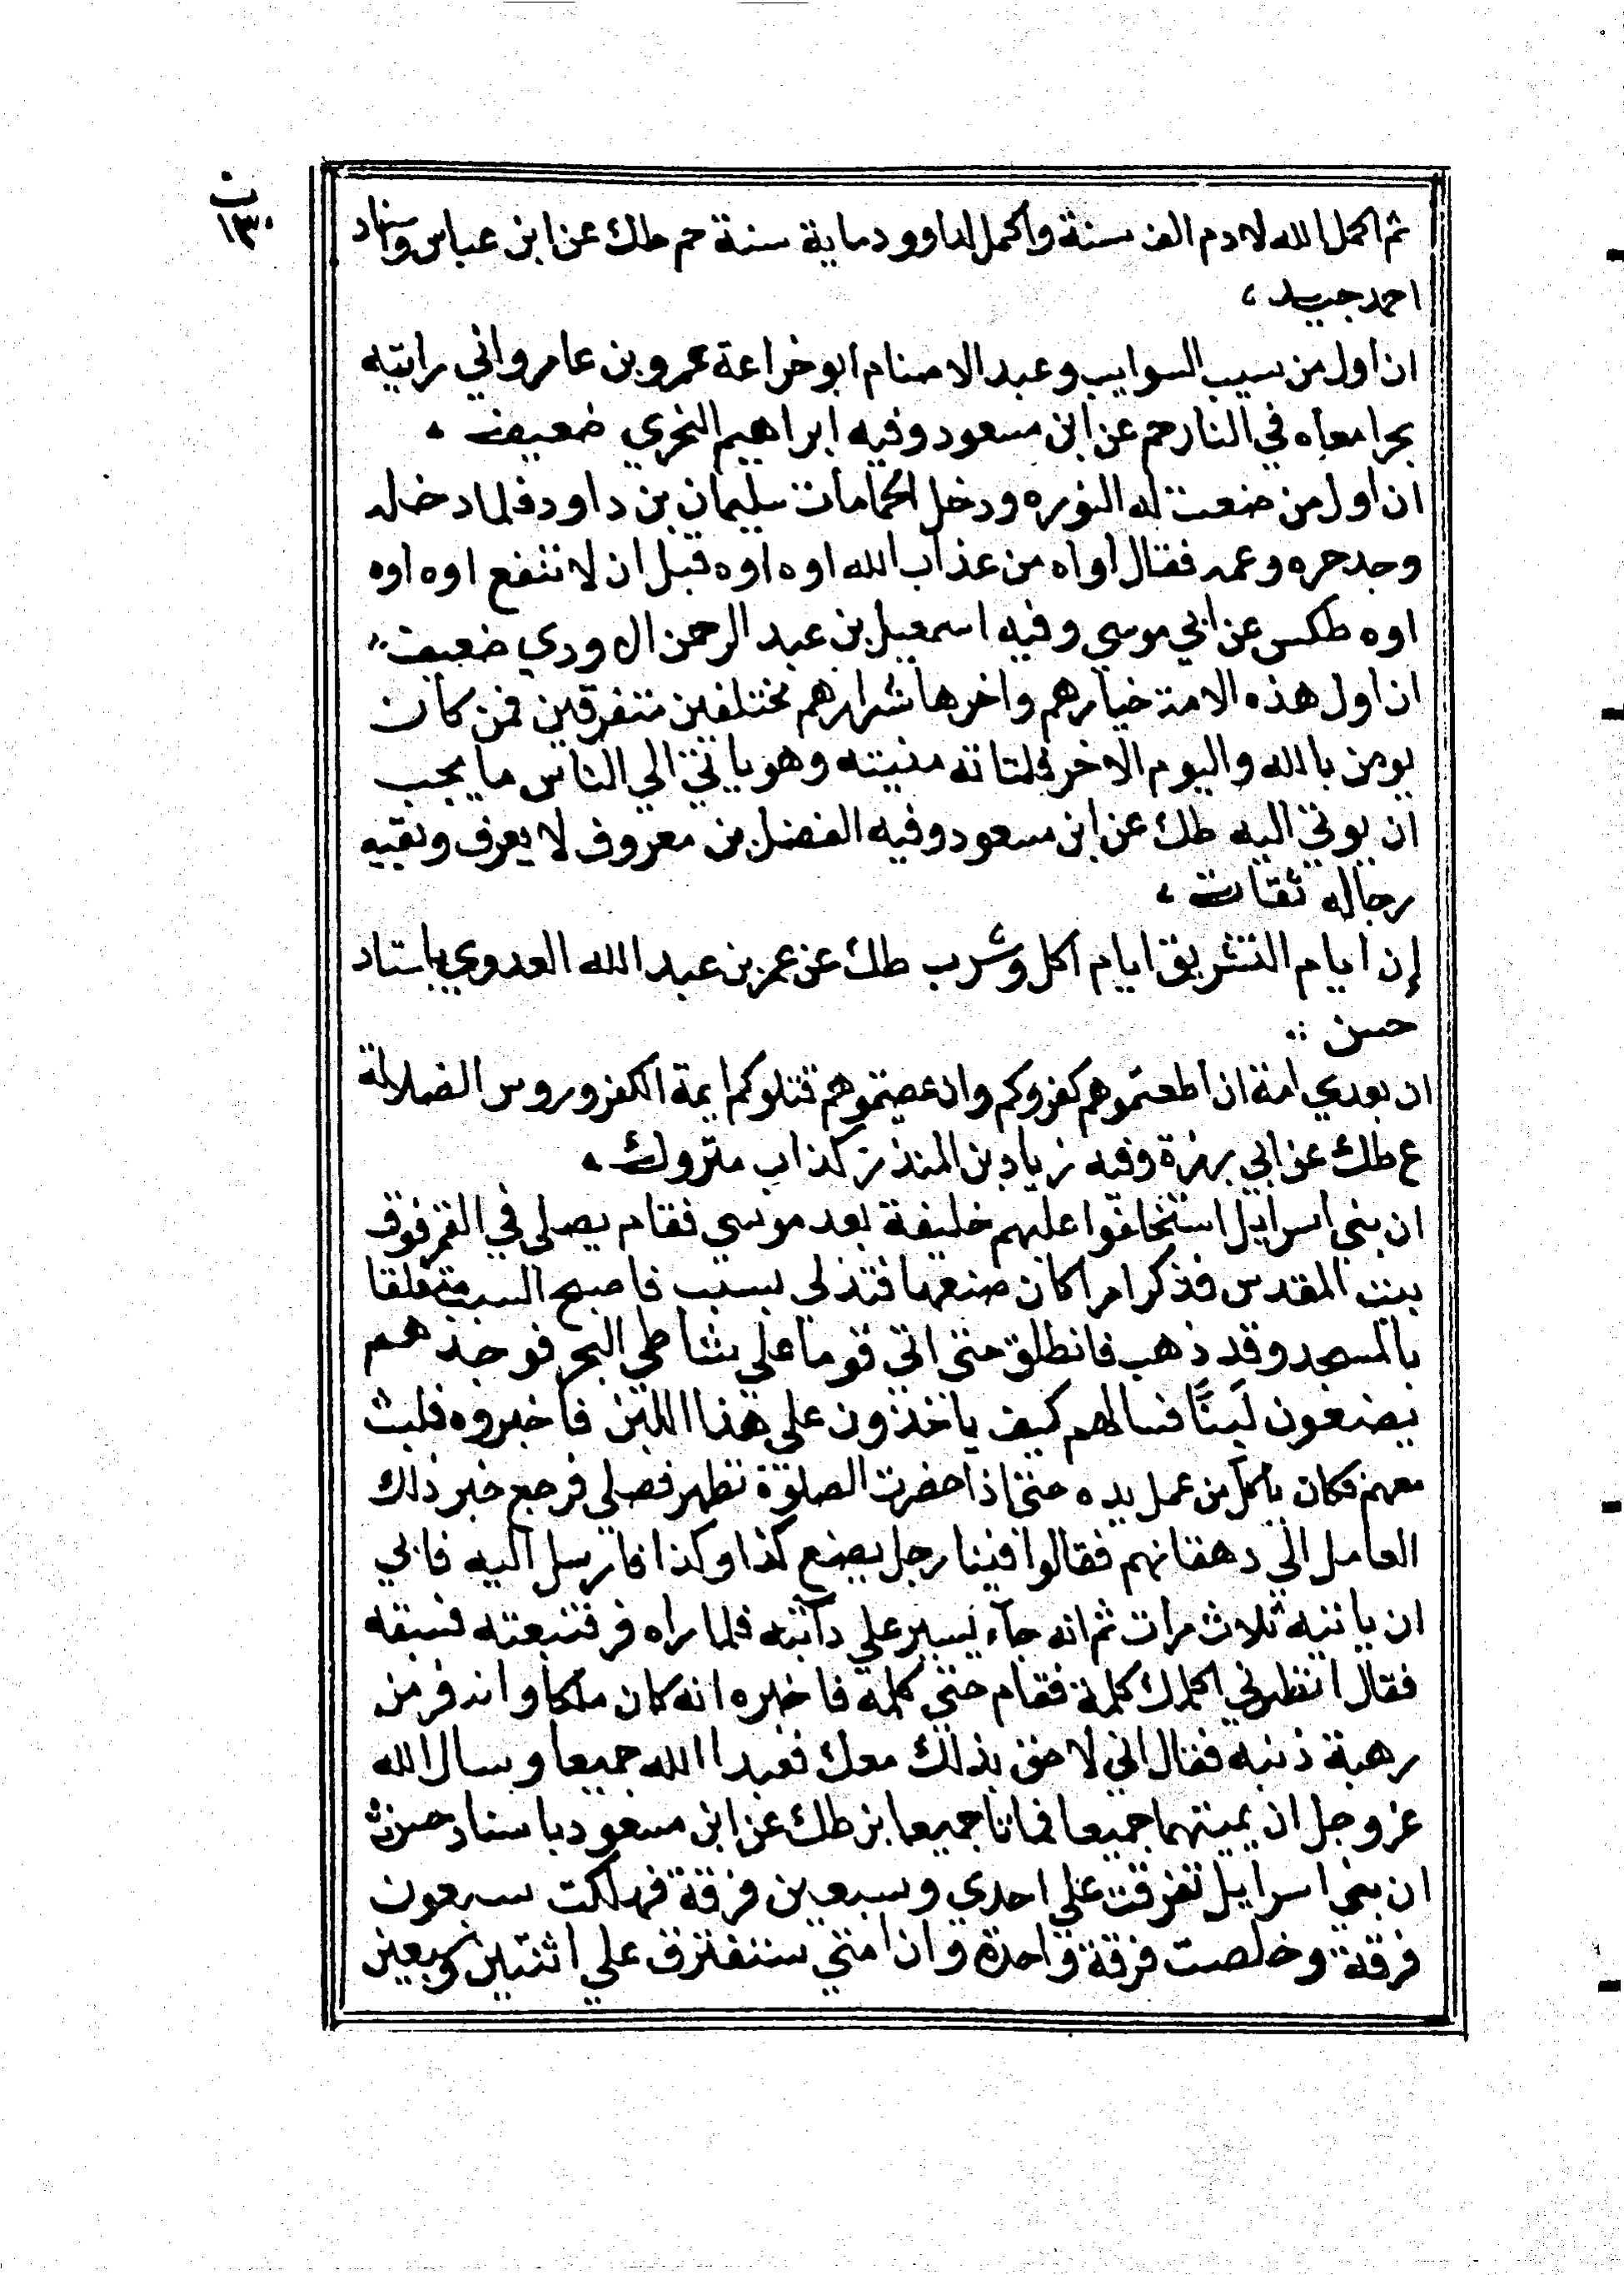 ت
١٣٠
ثم اكمل الله لادم الف سنة واكمل لداوود ماية سنة حم طك عن ابن عباس واسناد
احمد جيد
ان اول من سيب السوايب وعبد الاصنام ابو خزاعة عمرو بن عامر واني رايته
يجرامعاه في النار حم عن ابن مسعود وفيه ابراهيم الهجري ضعيف
ان اول من صنعت له النوره ودخل الحمامات سليمان بن داود فلما دخله
وجد حره وغمه فقال اواه من عذاب الله اوه اوه قبل ان لا تنفع اوه اوه
اوه طكس عن ابي موسي وفيه اسمعيل بن عبد الرحمن الاودي ضعيف
ان اول هذه الامة خيارهم واخرها شرارهم مختلفين متفرقين فمن كان
يومن بالله واليوم الاخر فلتاته منيته وهو ياتي الي الناس ما يحب
ان يوتي اليه طك عن ابن مسعود وفيه الفضل بن معروف لا يعرف وبقيه
رجاله ثقات
إن ايام التشريق ايام اكل وشرب طك عن عمر بن عبد الله العدوي باسناد
حسن
ان بعدي امة ان اطعتموهم كفروكم وان عصيتموهم قتلوكم ايمة الكفر وروس الضلالة
ع طك عن ابي برزة وفيه زياد بن المنذر كذاب متروك
ان بني اسرايل استخلفوا عليهم خليفة بعد موسي فقام يصلي في القمر فوق
بيت المقدس فذكر امرا كان صنعها فتدلي بسبب فاصبح السبب متعلقا
بالمسجد وقد ذهب فانطلق حتى اتي قوما علي شاطي البحر فوجدهم
يصنعون لَبِنًا فسالهم كيف ياخذون علي هذا اللبن فاخبروه فلبث
معهم فكان ياكل من عمل يده حتى اذا حضرت الصلوة تطهر فصلي فرجع خبر ذلك
العامل الي دهقانهم فقالوا فينا رجل يصنع كذا وكذا فارسل اليه فابي
ان ياتيه ثلاث مرات ثم انه جاء يسير علي دابته فلما راه فر فتبعته فسبقه
فقال انظرني اكلمك كلمة فقام حتي كلمه فاخبره انه كان ملكا وانه فر من
رهبة ذنبه فقال اني لاحق بذلك معك فعبدا الله جميعا وسال الله
عز وجل ان يميتهما جميعا فماتا جميعا بز طك عن ابن مسعود باسناد حسن
ان بني اسرايل تفرقت علي احدي وسبعين فرقة فهلكت سبعون
فرقة وخلصت فرقة واحدة وان امتي ستفترق علي اثنتين وسبعين